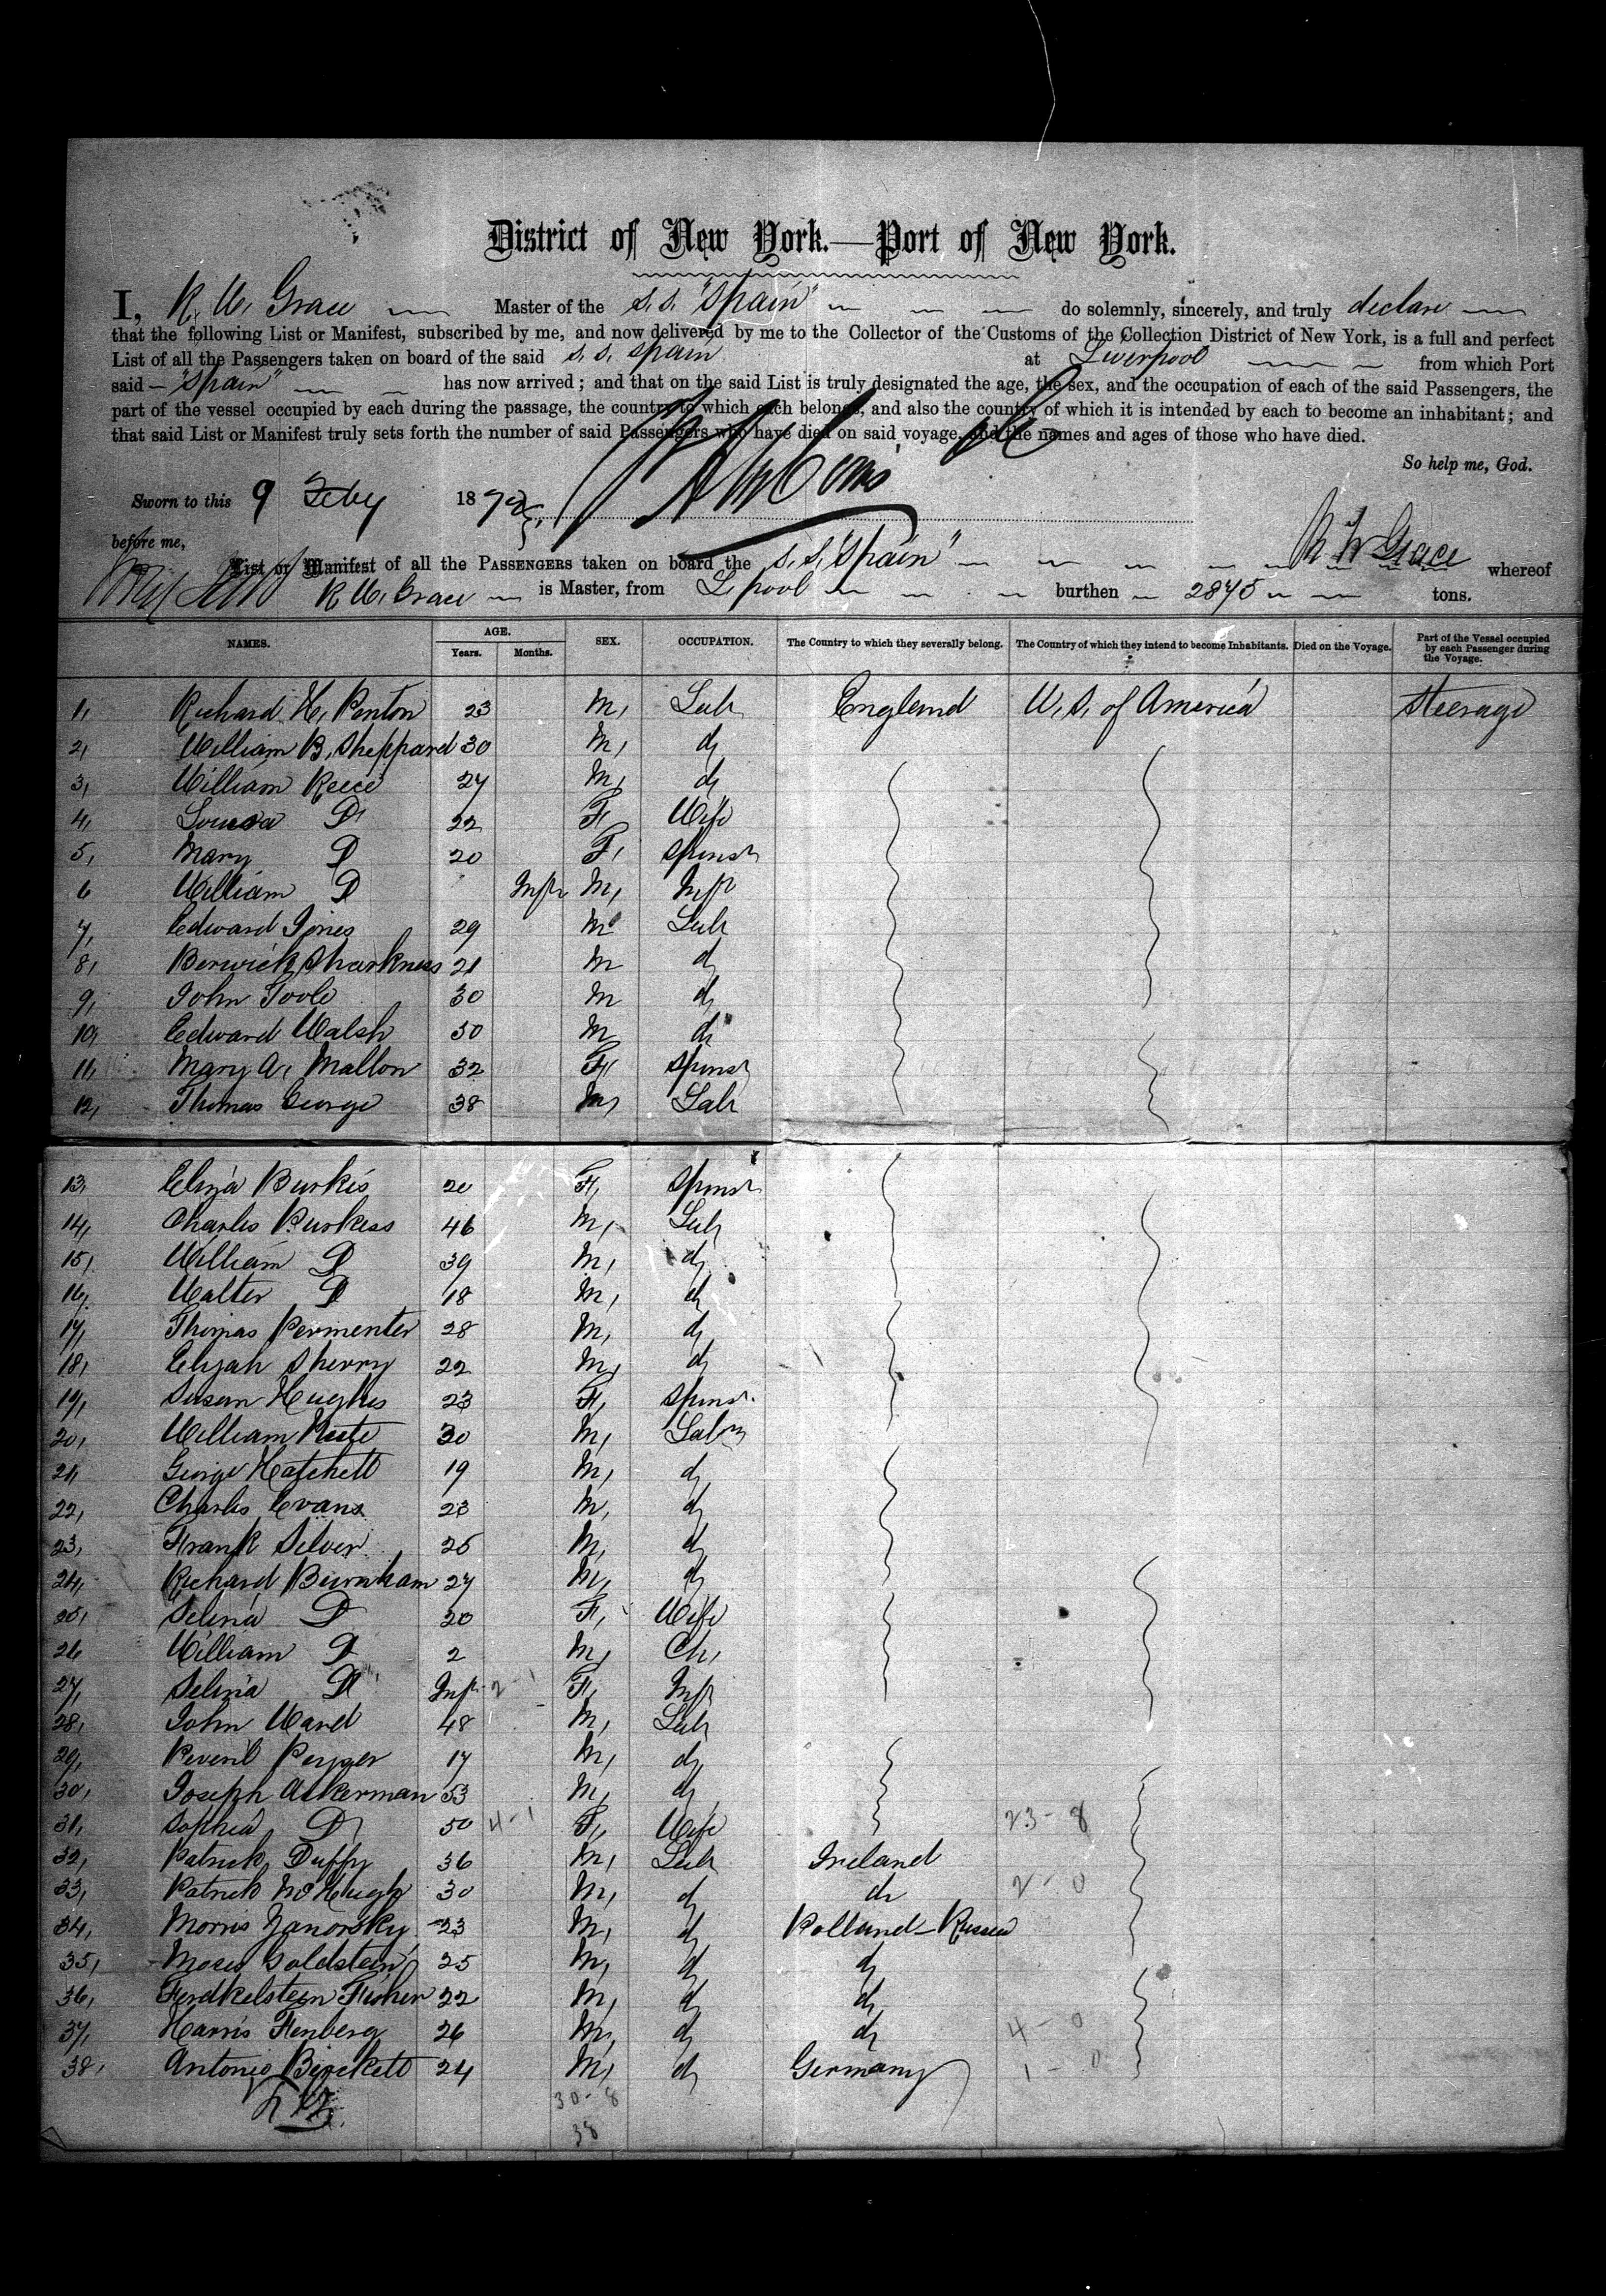 District of New York.—Port of New York.
I, R. W. Grace Master of the S.S. "Spain" do solemnly, sincerely, and truly declare
that the following List or Manifest, subscribed by me, and now delivered by me to the Collector of the Customs of the Collection District of New York, is a full and perfect
List of all the Passengers taken on board of the said S.S. Spain at Liverpool from which Port
said "Spain" has now arrived; and that on the said List is truly designated the age, the sex, and the occupation of each of the said Passengers, the
part of the vessel occupied by each during the passage, the country to which each belongs, and also the country of which it is intended by each to become an inhabitant; and
that said List or Manifest truly sets forth the number of said Passengers who have died on said voyage, and the names and ages of those who have died.
So help me, God.
Sworn to this 9 Feby 187
before me,
R W Grace
List or Manifest of all the PASSENGERS taken on board the S.S. "Spain" whereof
R. W. Grace is Master, from L'pool burthen 2875 tons.
NAMES. AGE. Years. Months. SEX. OCCUPATION. The Country to which they severally belong. The Country of which they intend to become Inhabitants. Died on the Voyage. Part of the Vessel occupied by each Passenger during the Voyage.
1, Richard H. Penton 23 M, Lab England U.S. of America Steerage
2, William B. Sheppard 30 M, do
3, William Reece 27 M, do
4, Louisa Do 22 F, Wife
5, Mary Do 20 F, Spinstr
6 William Do Inft M, Inft
7, Edward Jones 29 M Lab
8, Berwick Sharkness 21 M do
9, John Toole 30 M do
10, Edward Walsh 30 M do
11, Mary A. Mallon 32 F, Spinstr
12, Thomas George 38 M, Lab
13, Eliza Burkis 20 F, Spinstr
14, Charles Burkess 46 M, Lab
15, William Do 39 M, do
16, Walter Do 18 M, do
17, Thomas Permenter 28 M, do
18, Elijah Sherry 22 M, do
19, Susan Hughes 23 F, Spinstr
20, William 30 M, Labr
21, George Hatchett 19 M, do
22, Charles Evans 23 M, do
23, Frank Silver 25 M, do
24, Richard Burnham 27 M, do
25, Selina Do 20 F, Wife
26 William Do 2 M, Ch,
27, Selina Do Inft 2-1 F, Inft
28, John Ward 48 M, Lab
29, Peveril 17 M, do
30, Joseph Akerman 53 M, do
31, Sophia Do 50 4-1 F, Wife 23-8
32, Patrick Duffy 36 M, Lab Ireland
33, Patrick McHugh 30 M, do do 2-0
34, Morris Janorsky 23 M, do Polland-Russia
35, Moses Goldstein 25 M, do do
36, Ferdkelstein Fisher 22 M, do do
37, Harris Fenberg 26 M, do do 4-0
38, Antonio Birckett 24 M, do Germany 1-0
30-8
38